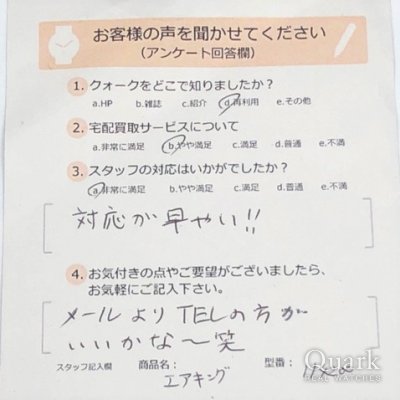 お客様の声を聞かせてください
(アンケート回答欄)
1. クォークをどこで知りましたか?
a.HP b.雑誌 c.紹介 d.再利用 e.その他
2. 宅配買取サービスについて
a.非常に満足 b.やや満足 c.満足 d.普通 e.不満
3. スタッフの対応はいかがでしたか?
a.非常に満足 b.やや満足 c.満足 d.普通 e.不満
対応が早やい!!
4. お気付きの点やご要望がございましたら、
お気軽にご記入下さい。
メールよりTELの方が
いいかな〜笑
スタッフ記入欄 商品名: エアキング 型番:
Quark
REAL WATCHES